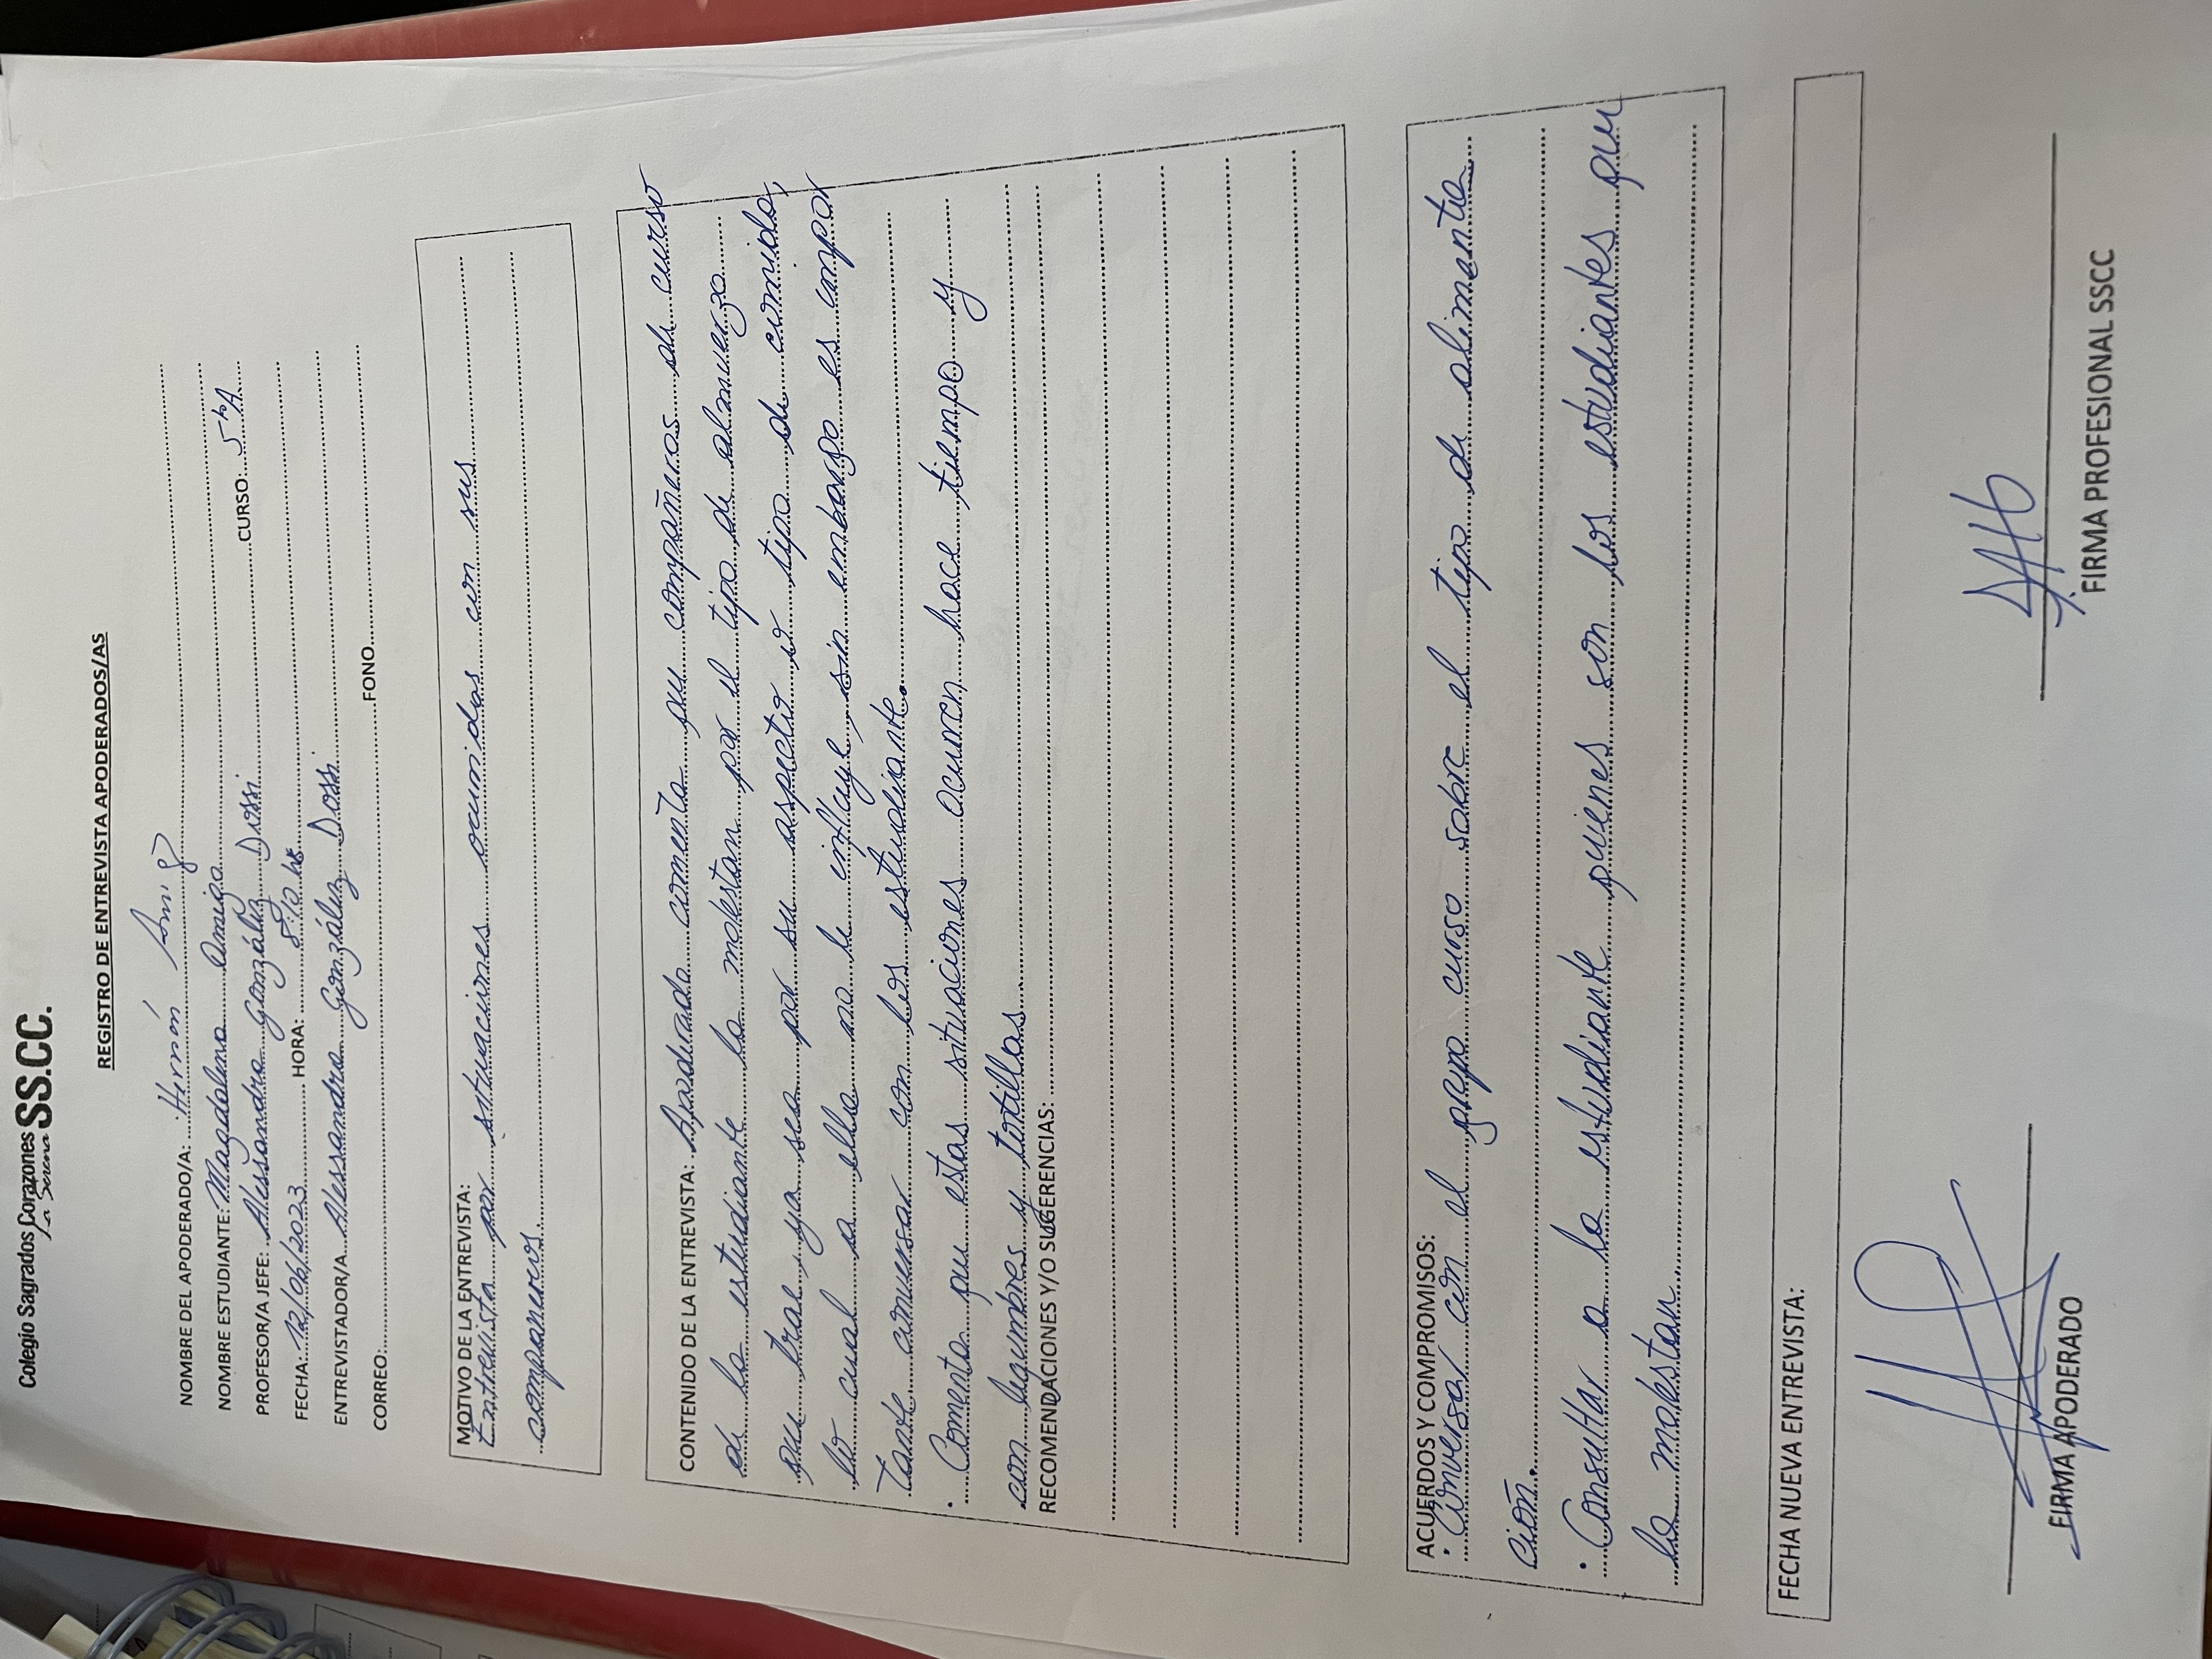 Colegio Sagrados Corazones SS.CC.
La Serena
REGISTRO DE ENTREVISTA APODERADOS/AS
NOMBRE DEL APODERADO/A: Hernán Amigo
NOMBRE ESTUDIANTE: Magdalena Amigo CURSO: 5to A
PROFESOR/A JEFE: Alessandra González Dossi
FECHA: 12/06/2023 HORA: 8:10 hs
ENTREVISTADOR/A Alessandra González Dossi
CORREO: FONO
MOTIVO DE LA ENTREVISTA:
Entrevista por situaciones ocurridas con sus
compañeros.
CONTENIDO DE LA ENTREVISTA: Apoderado comenta que compañeros de curso
de la estudiante la molestan por el tipo de almuerzo
que trae, ya sea por su aspecto o tipo de comida,
lo cual a ella no le influye, sin embargo es impor
tante conversar con los estudiante.
· Comenta que estas situaciones ocurren hace tiempo y
con legumbres y tortillas.
RECOMENDACIONES Y/O SUGERENCIAS:
ACUERDOS Y COMPROMISOS:
· Conversar con el grupo curso sobre el tipo de alimenta
ción.
· Consultar a la estudiante quienes son los estudiantes que
la molestan.
FECHA NUEVA ENTREVISTA:
FIRMA APODERADO
FIRMA PROFESIONAL SSCC